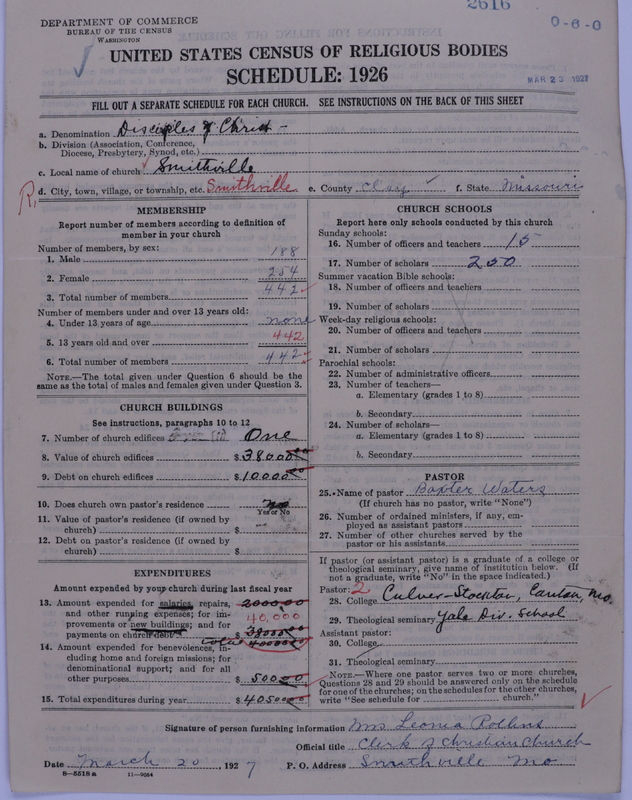 2616
DEPARTMENT OF COMMERCE
BUREAU OF THE CENSUS
WASHINGTON
0-6-0
UNITED STATES CENSUS OF RELIGIOUS BODIES
SCHEDULE: 1926
MAR 23 1927
FILL OUT A SEPARATE SCHEDULE FOR EACH CHURCH. SEE INSTRUCTIONS ON THE BACK OF THIS SHEET
a. Denomination Disciples of Christ -
b. Division (Association, Conference,
Diocese, Presbytery, Synod, etc.)
c. Local name of church Smithville
R. d. City, town, village, or township, etc. Smithville e. County Clay f. State Missouri
MEMBERSHIP
Report number of members according to definition of
member in your church
Number of members, by sex:
1. Male 188
2. Female 254
3. Total number of members 442
Number of members under and over 13 years old:
4. Under 13 years of age none
5. 13 years old and over 442
6. Total number of members 442
NOTE.—The total given under Question 6 should be the
same as the total of males and females given under Question 3.
CHURCH BUILDINGS
See instructions, paragraphs 10 to 12
7. Number of church edifices One
8. Value of church edifices $ 38000.00
9. Debt on church edifices $ 10000.00
10. Does church own pastor's residence No
Yes or No
11. Value of pastor's residence (if owned by
church) $
12. Debt on pastor's residence (if owned by
church) $
EXPENDITURES
Amount expended by your church during last fiscal year
13. Amount expended for salaries, repairs, 2000.00
and other running expenses; for im- 40,000
provements or new buildings; and for
payments on church debt 38000.00
total 40000.00
14. Amount expended for benevolences, in-
cluding home and foreign missions; for
denominational support; and for all
other purposes $ 500.00
15. Total expenditures during year $ 40500.00
CHURCH SCHOOLS
Report here only schools conducted by this church
Sunday schools:
16. Number of officers and teachers 15
17. Number of scholars 250
Summer vacation Bible schools:
18. Number of officers and teachers
19. Number of scholars
Week-day religious schools:
20. Number of officers and teachers
21. Number of scholars
Parochial schools:
22. Number of administrative officers
23. Number of teachers—
a. Elementary (grades 1 to 8)
b. Secondary
24. Number of scholars—
a. Elementary (grades 1 to 8)
b. Secondary
PASTOR
25. Name of pastor Baxter Waters
(If church has no pastor, write "None")
26. Number of ordained ministers, if any, em-
ployed as assistant pastors
27. Number of other churches served by the
pastor or his assistants
If pastor (or assistant pastor) is a graduate of a college or
theological seminary, give name of institution below. (If
not a graduate, write "No" in the space indicated.)
Pastor: 2
28. College Culver-Stockton, Canton, Mo.
29. Theological seminary Yale Div. School
Assistant pastor:
30. College
31. Theological seminary
NOTE.—Where one pastor serves two or more churches,
Questions 28 and 29 should be answered only on the schedule
for one of the churches; on the schedules for the other churches,
write "See schedule for church."
Signature of person furnishing information Mrs Leonia Rollins
Official title Clerk of Christian Church
Date March 20, 1927 P. O. Address Smithville Mo
8—5518 a 11—9084